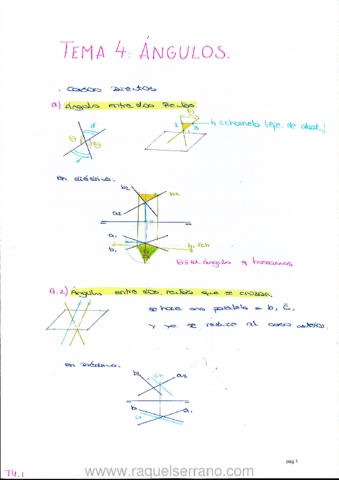 TEMA 4: ÁNGULOS.
. casos directos
a) Ángulo entre dos rectas
h ≡ charnela (eje de abat.)
en diédrico:
b2
a2
a1
b1
θ ≡ el ángulo q buscamos
a.2) Ángulo entre dos rectas que se cruzan.
se hace una paralela a b, c,
y ya se reduce al caso anterior.
en diédrico:
b2
a2
b1
a1
pag 1
T4.1
www.raquelserrano.com